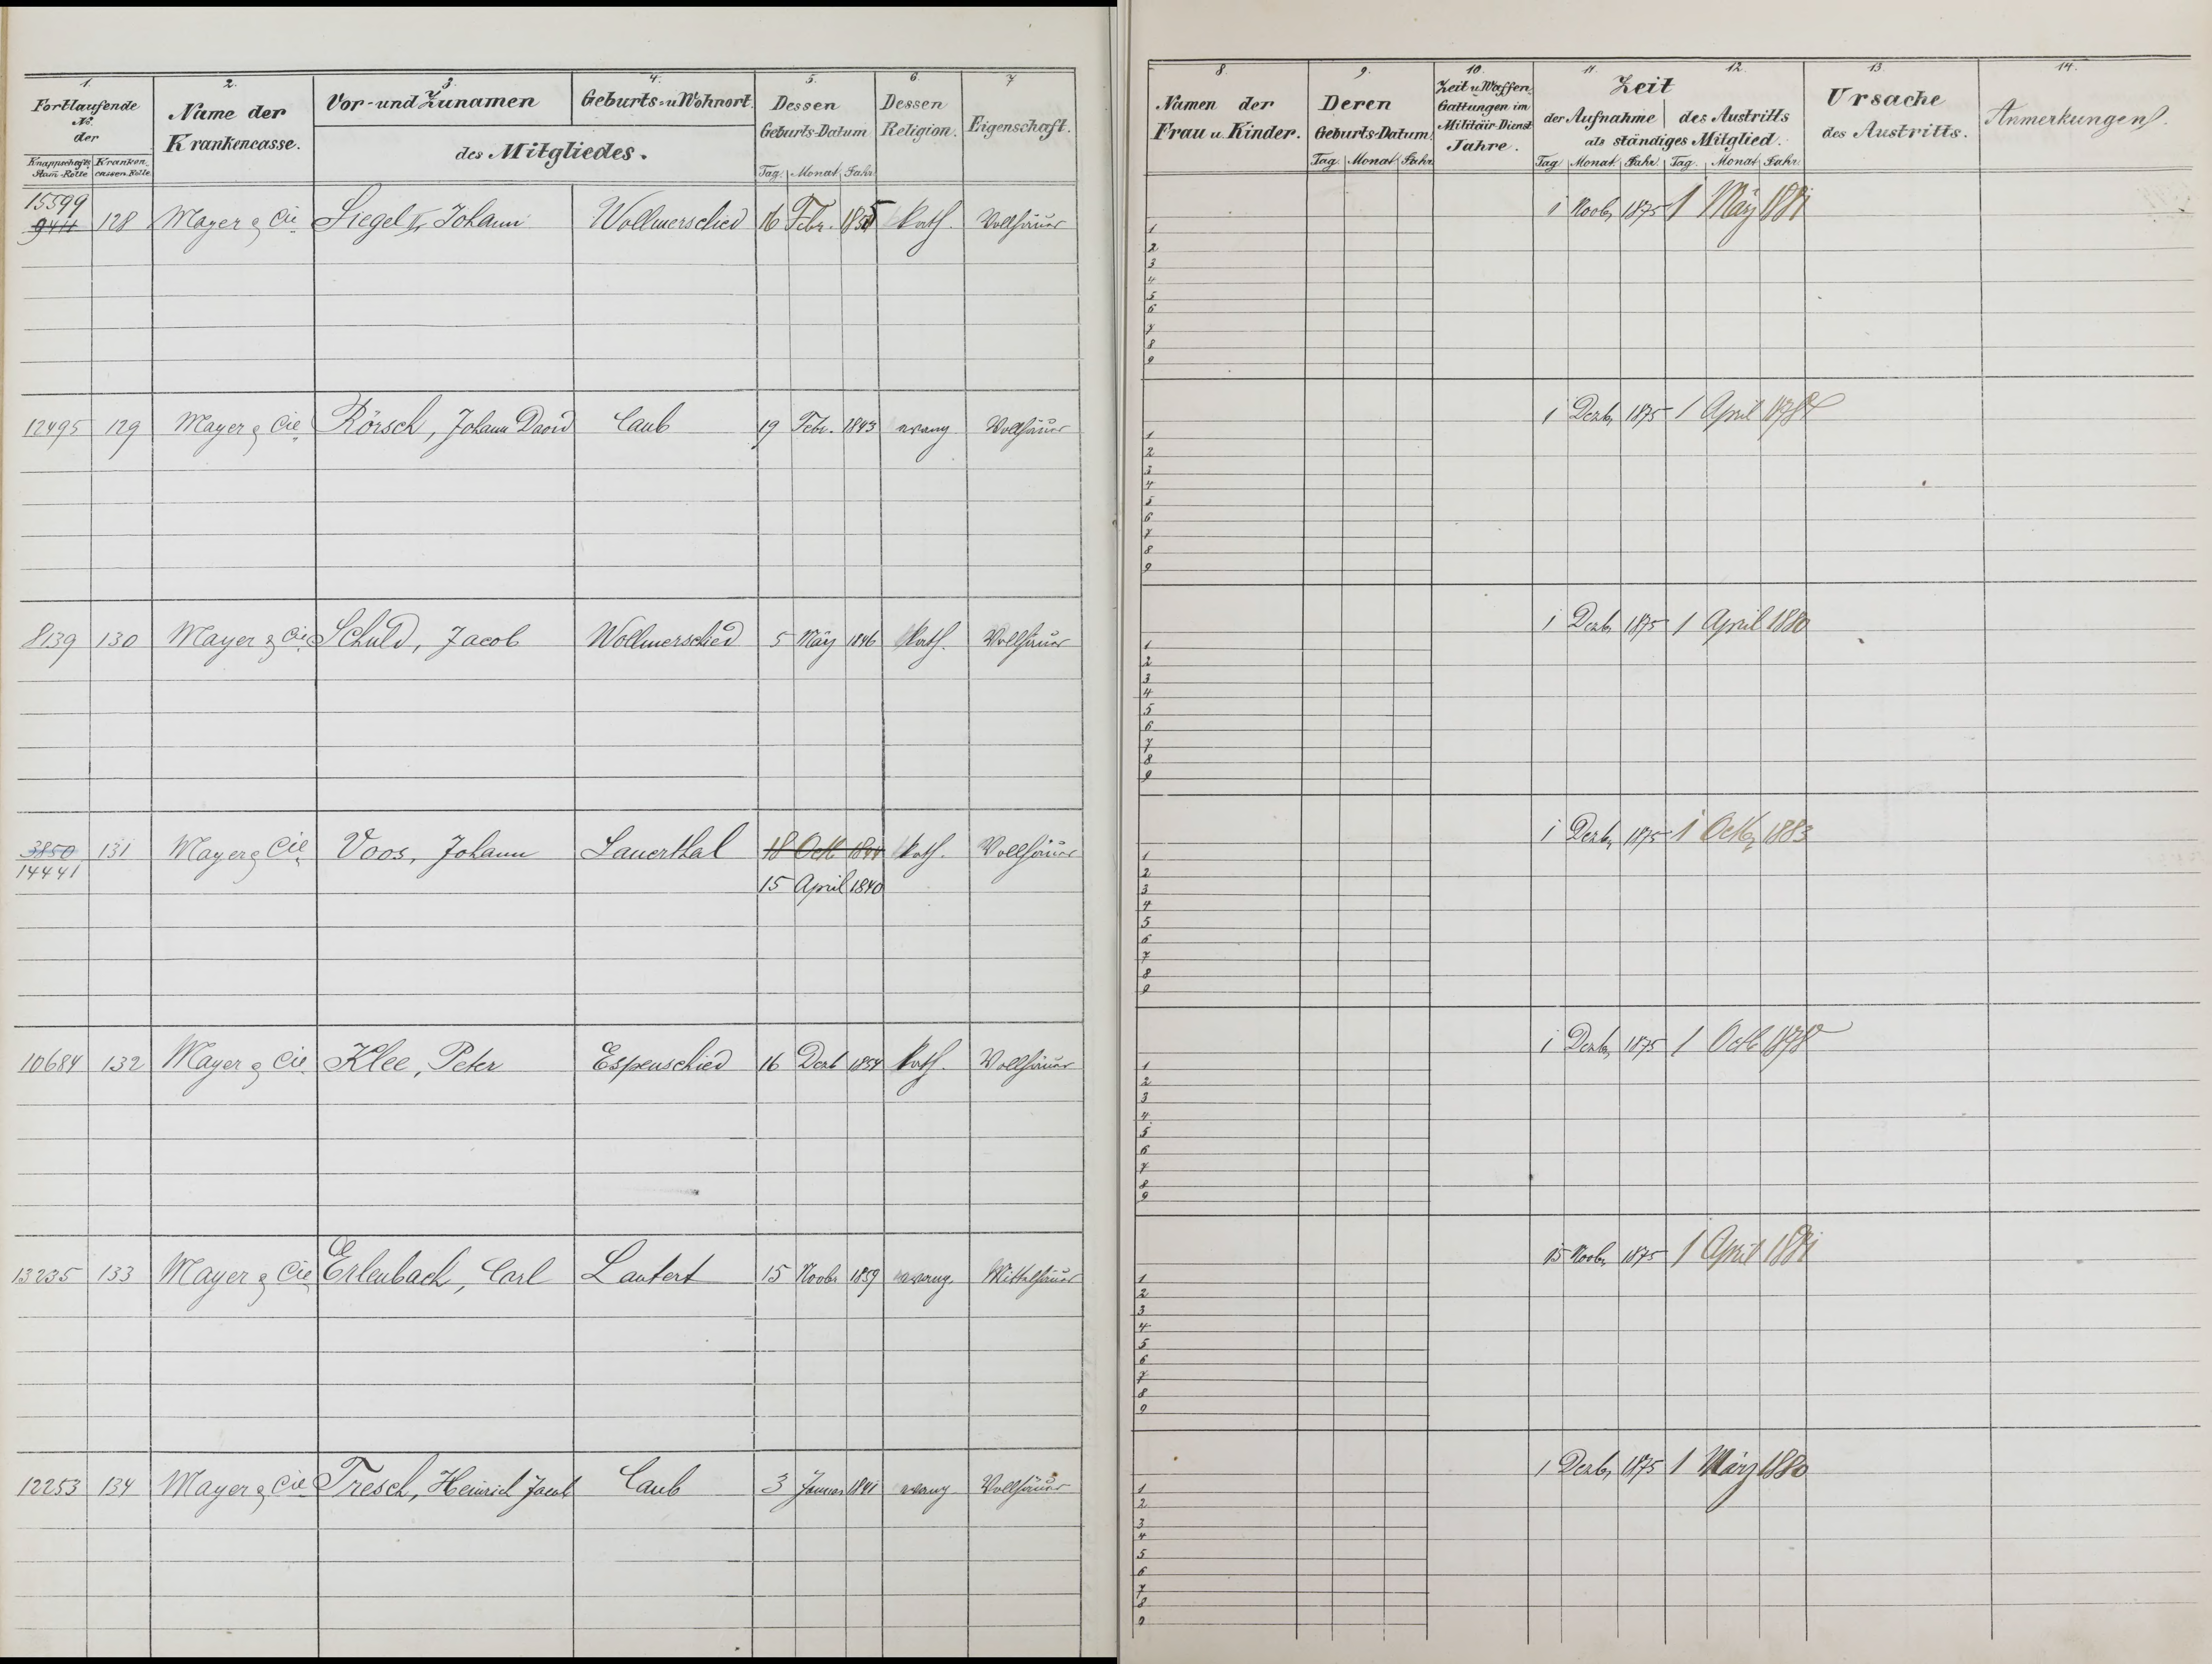 1. 2. 3. 4. 5. 6. 7
Fortlaufende No. der
Knappschafts Stam-Rolle Kranken cassen-Rolle
Name der Krankencasse.
Vor- und Zunamen Geburts- u Wohnort
des Mitgliedes.
Dessen Geburts-Datum
Tag. Monat Jahr
Dessen Religion.
Eigenschaft.
15599
9411 128 Mayer & Cie Siegel II, Johann Wollmerschied 16 Febr. 1855 kath. Vollhäuer
12495 129 Mayer & Cie Rörsch, Johann David Caub 19 Febr. 1843 evang Vollhäuer
8139 130 Mayer & Cie Schuld, Jacob Wollmerschied 5 März 1846 kath. Vollhäuer
3850 131 Mayer & Cie Voos, Johann Sauerthal 18 Octb 1844 kath. Vollhäuer
14441 15 April 1840
10684 132 Mayer & Cie Klee, Peter Espenschied 16 Dezb 1854 kath. Vollhäuer
13235 133 Mayer & Cie Erlenbach, Carl Lautert 15 Novbr 1859 evang. Mittelhäuer
12253 134 Mayer & Cie Tresch, Heinrich Jacob Caub 3 Januar 1841 evang Vollhäuer
8. 9. 10. 11. 12. 13. 14.
Namen der Frau u. Kinder.
Deren Geburts-Datum
Tag. Monat Jahr
Zeit u Waffen- Gattungen im Militair-Dienst Jahre.
Zeit
der Aufnahme des Austritts
als ständiges Mitglied.
Tag Monat Jahr. Tag. Monat Jahr.
Ursache des Austritts.
Anmerkungen.
1 Novb. 1875 1 März 1881
1
2
3
4
5
6
7
8
9
1 Dezb. 1875 1 April
1
2
3
4
5
6
7
8
9
1 Dezb. 1875 1 April 1880
1
2
3
4
5
6
7
8
9
1 Dezb. 1875 1 Octb. 1883
1
2
3
4
5
6
7
8
9
1 Dezb. 1875 1 Octb 1878
1
2
3
4
5
6
7
8
9
15 Novb. 1875 1 April 1881
1
2
3
4
5
6
7
8
9
1 Dezb. 1875 1 März 1880
1
2
3
4
5
6
7
8
9